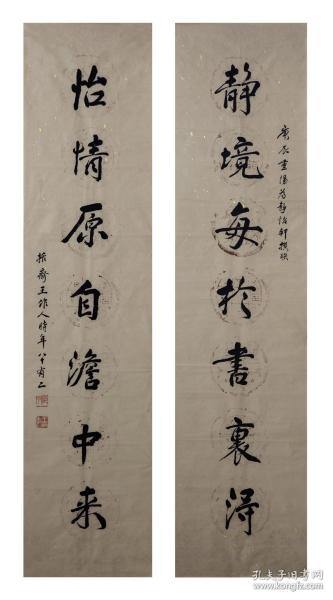 庚辰重陽为静怡軒撰聯
静境每於書裏得
怡情原自澹中来
振齋王作人時年八十有二
孔夫子旧书网
kongfz.com